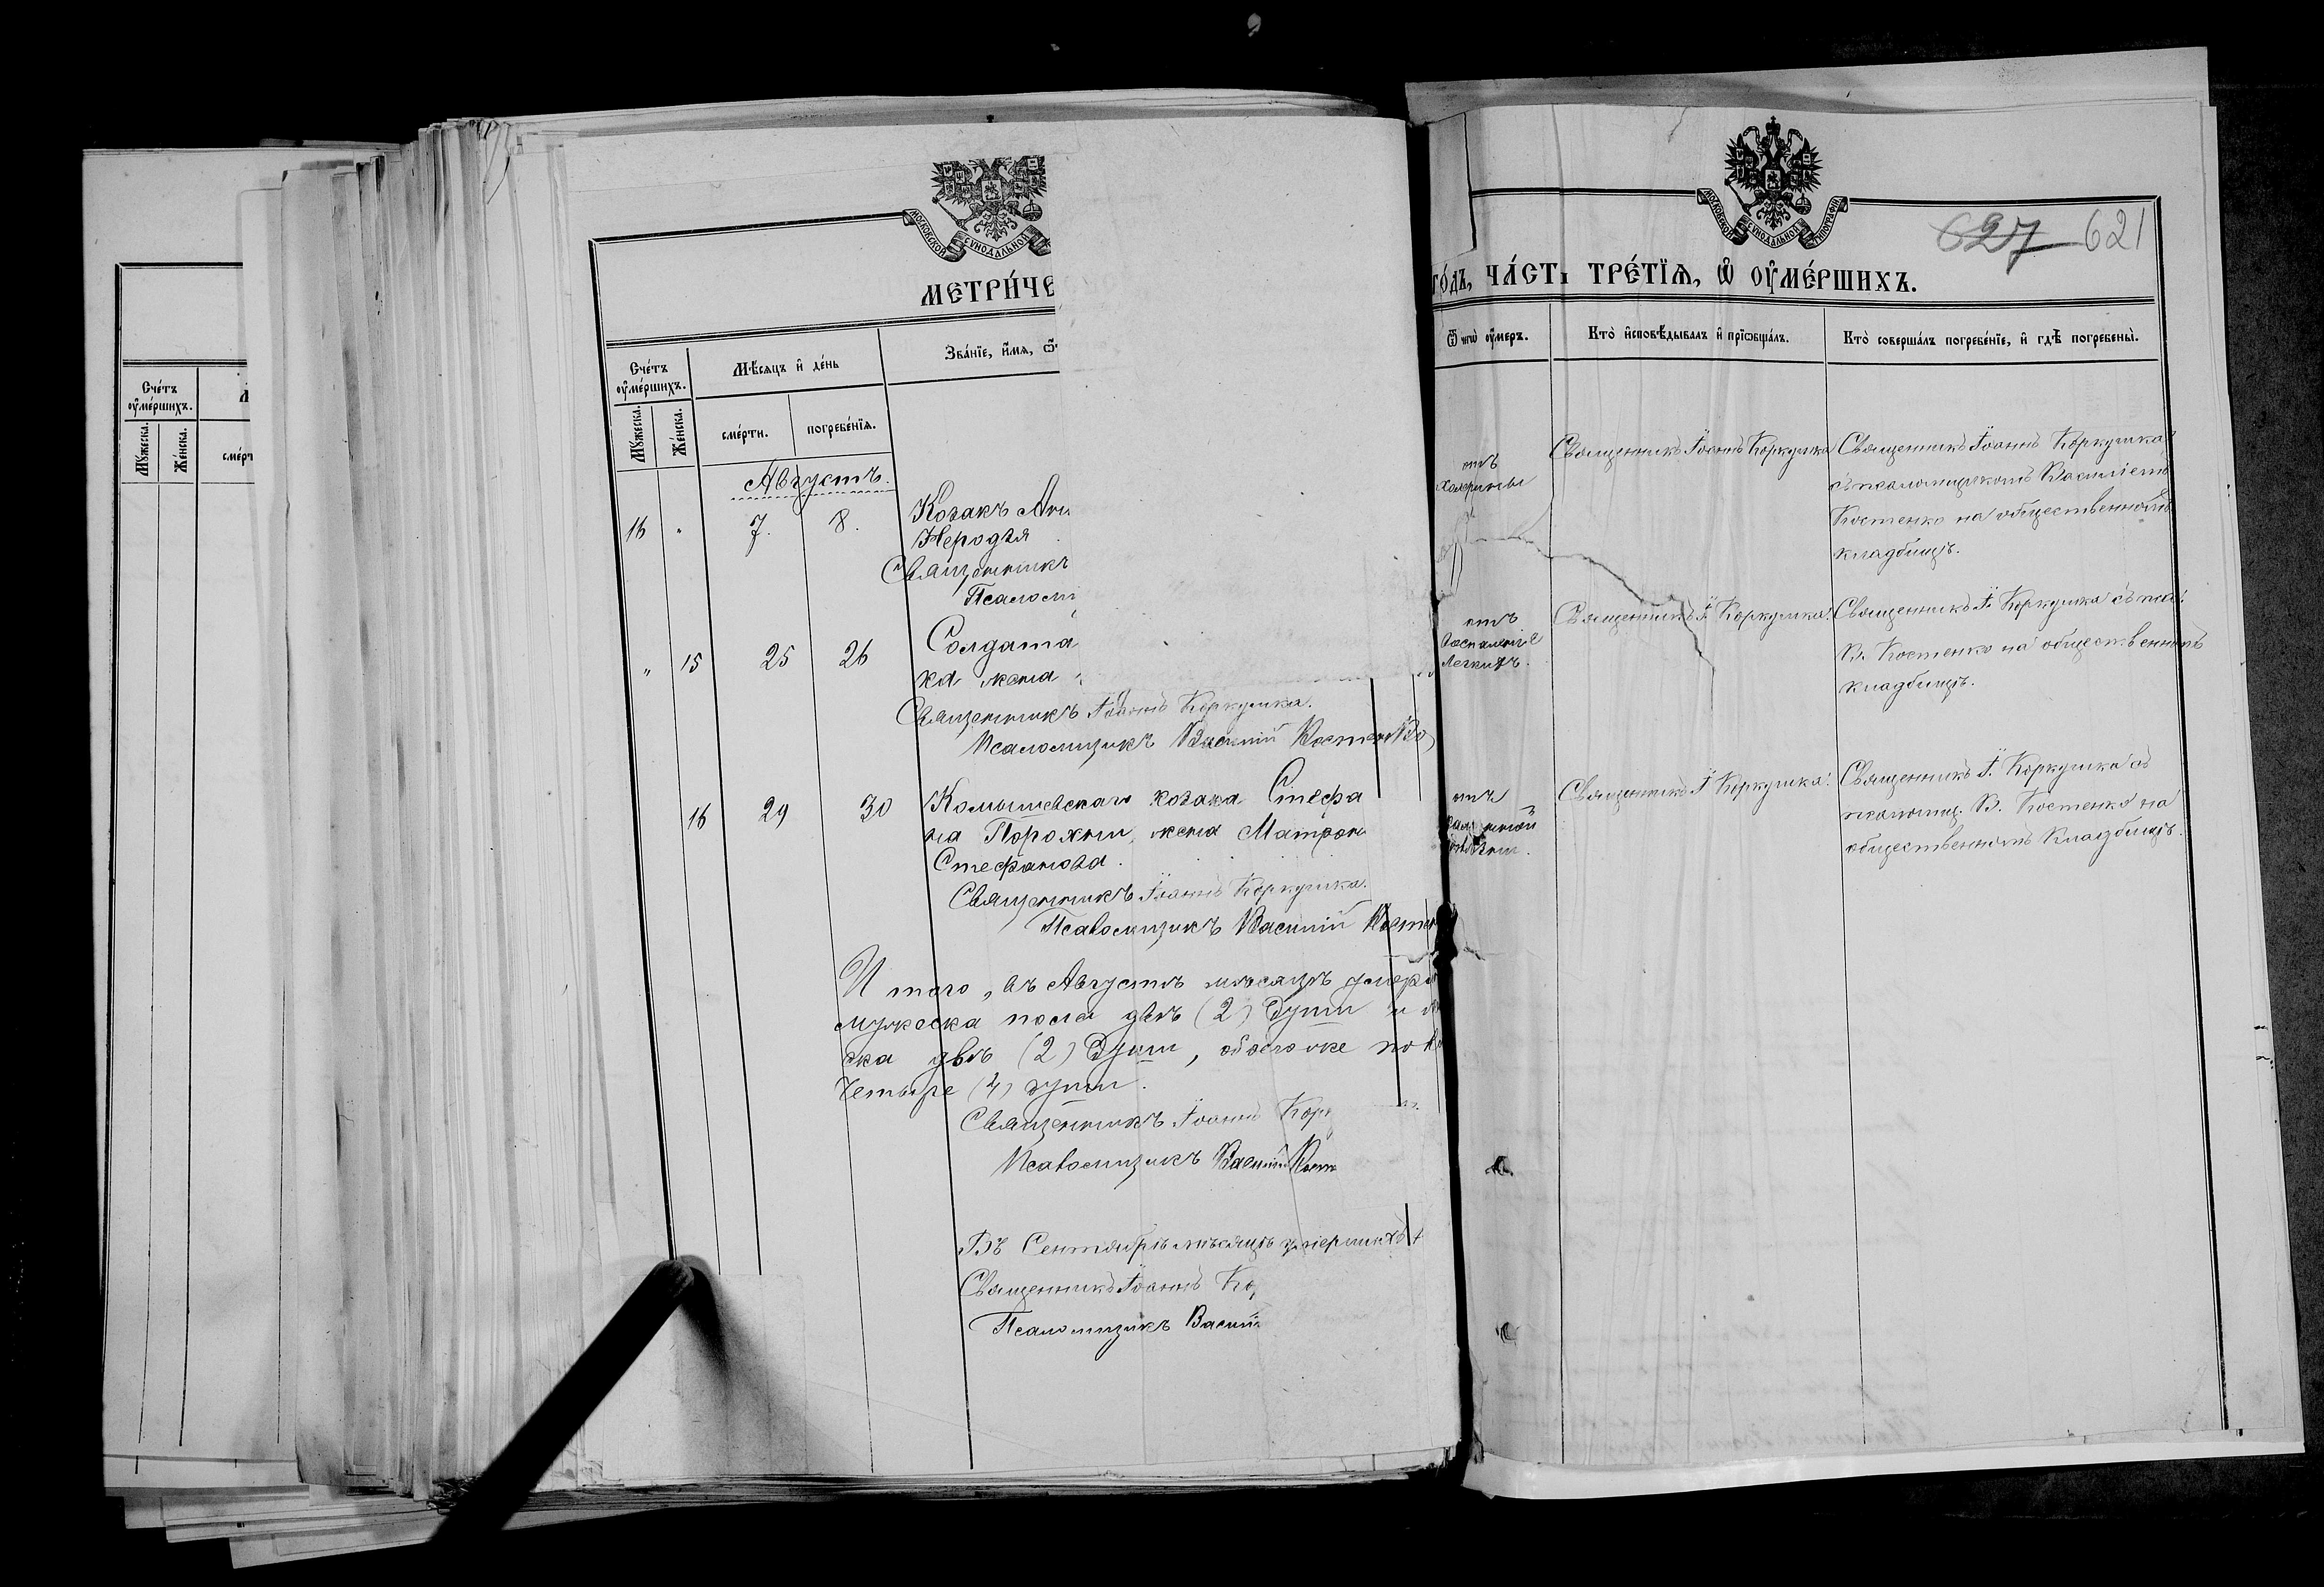 МОСКОВСКОЙ СѴНОДАЛЬНОЙ
МЕТРИ́ЧЕ
Сче́тъ оу҆ме́ршихъ.
Мꙋ́жеска.
Же́нска.
сме́рт
Сче́тъ оу҆ме́ршихъ.
Мꙋ́жеска.
Же́нска.
Мѣ́сяцъ и҆ де́нь
сме́рти.
погребе́нїѧ.
Зва́нїе, и҆́мѧ,
Августъ.
16 " 7. 8.
Козакъ
Неродѣя
Священникъ
Псалом
" 15 25 26
Солдата
ка жена
Священникъ Іоаннъ Коркушка.
Псаломщикъ Василій Костенко
16 29 30
Комышевскаго козака Стефа
на Порохни жена Матрон
Стефанова.
Священникъ Іоаннъ Коркушка.
Псаломщикъ Василій Костен
Итого, въ Августѣ мѣсяцѣ умерло
мужеска пола двѣ (2) души и
ска двѣ (2) души, обоего же по
четыре (4) души.
Священникъ Іоаннъ Кор
Псаломщикъ Василій Кост
Въ Сентябрѣ мѣсяцѣ умершихъ
Священникъ Іоаннъ Ко
Псаломщикъ Васил
МОСКОВСКОЙ СѴНОДАЛЬНОЙ ТИПОГРАФІИ
627 621
го́дъ, ЧА́СТЬ ТРЕ́ТЇѦ, Ѽ ОУ҆МЕ́РШИХЪ.
Ѿ чегѡ̀ оу҆́меръ.
Кто̀ и҆сповѣ́дывалъ и҆ прїѡбща́лъ.
Кто̀ соверша́лъ погребе́нїе, и҆ гдѣ̀ погребены̀.
отъ
холерины
Священникъ Іоаннъ Коркушка
Священникъ Іоаннъ Коркушка
съ псаломщикомъ Василіемъ
Костенко на общественномъ
кладбищѣ.
отъ
воспаленія
легкихъ.
Священникъ І. Коркушка.
Священникъ І. Коркушка съ пса:
В. Костенко на общественномъ
кладбищѣ.
отъ
Священникъ І. Коркушка.
Священникъ І. Коркушка съ
псаломщ. В. Костенко на
общественномъ кладбищѣ.